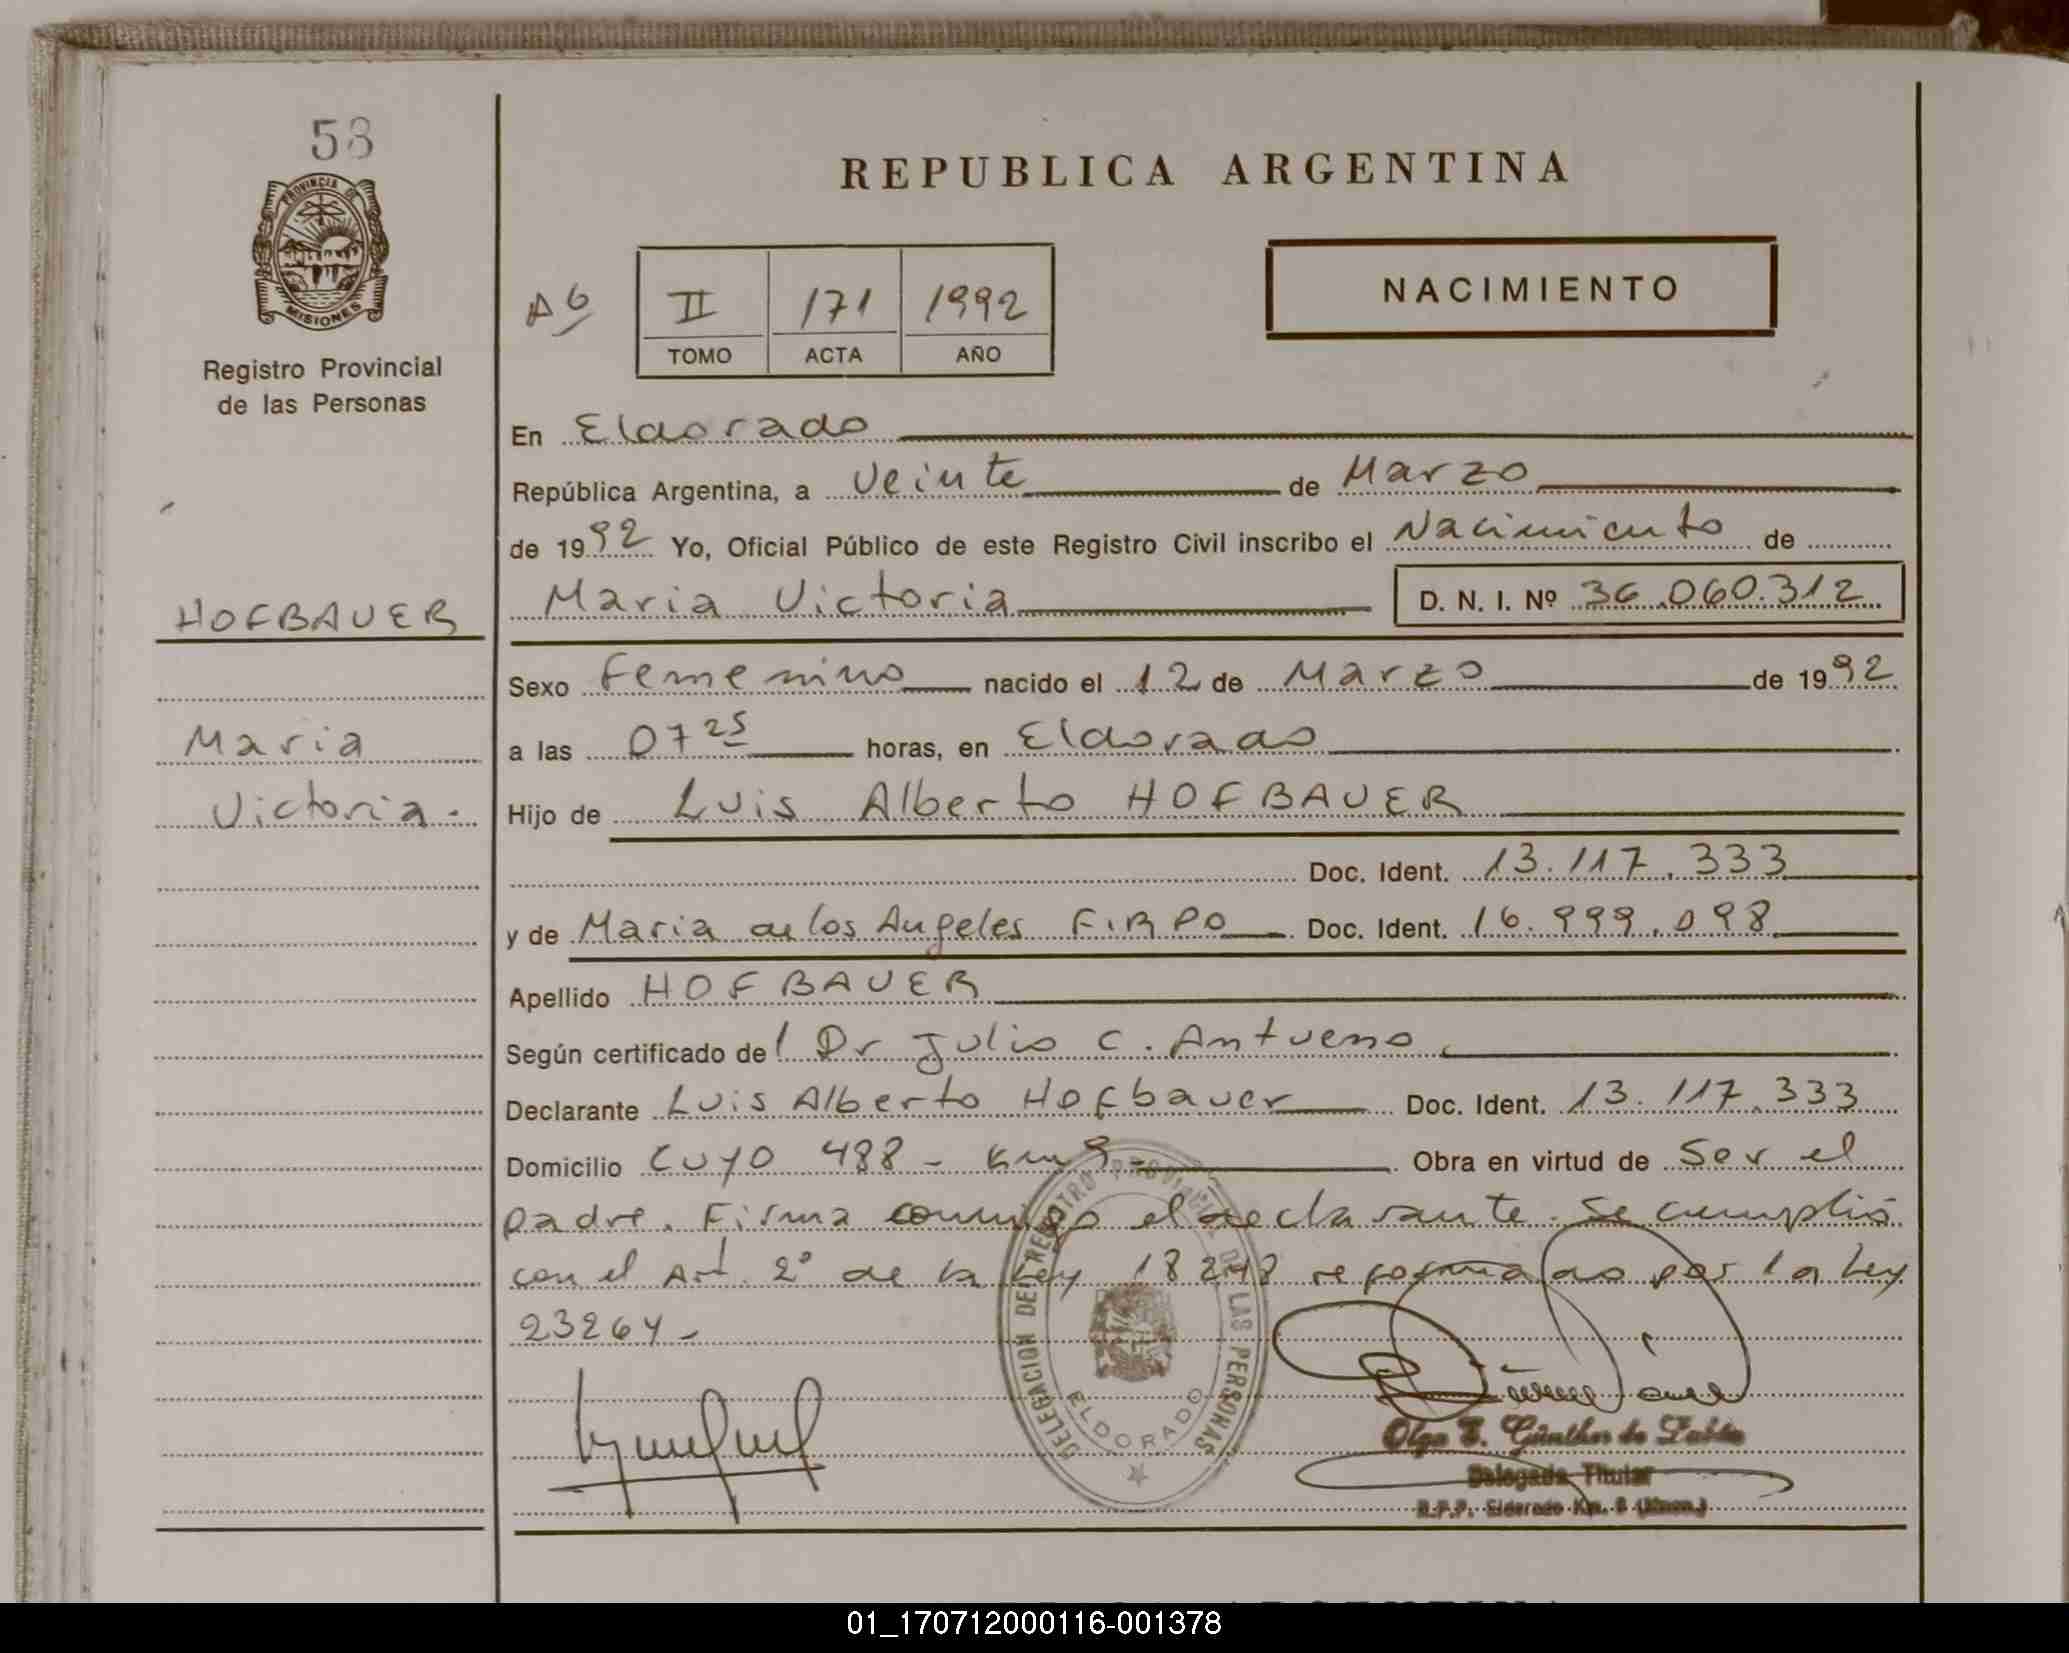 58
PROVINCIA DE
MISIONES
Registro Provincial
de las Personas
REPUBLICA ARGENTINA
A6
II 171 1992
TOMO ACTA AÑO
NACIMIENTO
En Eldorado
República Argentina, a Veinte de Marzo
de 1992 Yo, Oficial Público de este Registro Civil inscribo el Nacimiento de
HOFBAUER
Maria Victoria D. N. I. Nº 36.060.312
Sexo Femenino nacido el 12 de Marzo de 1992
Maria
a las 07 25 horas, en Eldorado
Victoria.-
Hijo de Luis Alberto HOFBAUER
Doc. Ident. 13.117.333
y de Maria de los Angeles FIRPO Doc. Ident. 16.999.098
Apellido HOFBAUER
Según certificado del Dr Julio C. Antueno
Declarante Luis Alberto Hofbauer Doc. Ident. 13.117.333
Domicilio CUYO 488 - Km 9 - Obra en virtud de Ser el
padre. Firma conmigo el declarante. Se cumplió
con el Art. 2º de la Ley 18248 reformado por la Ley
23264 -
DELEGACION DEL REGISTRO PROVINCIAL DE LAS PERSONAS
ELDORADO
Olga E. Günther de
Delegada Titular
R.P.P. Eldorado Km. 9 (Mnes.)
01_170712000116-001378